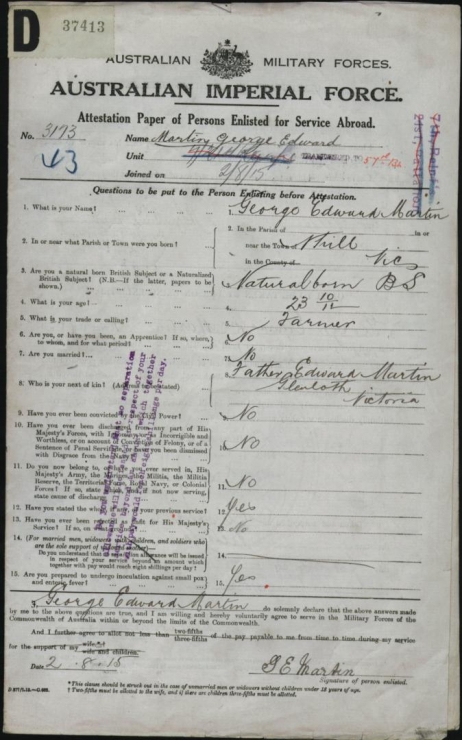 D 37413
AUSTRALIAN MILITARY FORCES.
AUSTRALIAN IMPERIAL FORCE.
Attestation Paper of Persons Enlisted for Service Abroad.
No. 3193 Name Martin George Edward
43
Unit TRANSFERRED TO 57th Bn
Joined on 2/8/15
Questions to be put to the Person Enlisting before Attestation.
1. What is your Name? 1. George Edward Martin
2. In or near what Parish or Town were you born? 2. In the Parish of in or
near the Town Nhill
in the County of Vic
3. Are you a natural born British Subject or a Naturalized
British Subject? (N.B.—If the latter, papers to be
shown.) 3. Natural born B S
4. What is your age? 4. 23 10/12
5. What is your trade or calling? 5. Farmer
6. Are you, or have you been, an Apprentice? If so, where,
to whom, and for what period? 6. No
7. Are you married? 7. No
8. Who is your next of kin? 8. Father Edward Martin
Glenloth
Victoria
9. Have you ever been convicted by the Civil Power? 9. No
10. Have you ever been discharged from any part of His
Majesty's Forces, with Ignominy, or as Incorrigible and
Worthless, or on account of Conviction of Felony, or of a
Sentence of Penal Servitude, or have you been dismissed
with Disgrace from the Navy? 10. No
11. Do you now belong to, or have you ever served in, His
Majesty's Army, the Marines, the Militia, the Militia
Reserve, the Territorial Reserve, Royal Navy, or Colonial
Forces? If so, state which, and if not now serving,
state cause of discharge 11. No
12. Have you stated the whole, if any, of your previous service? 12. Yes
13. Have you ever been rejected as unfit for His Majesty's
Service? If so, on what grounds? 13. No
14. (For married men, widowers with children, and soldiers who
are the sole support of widowed mother)
Do you understand that no separation allowance will be issued
in respect of your service beyond an amount which
together with pay would reach eight shillings per day? 14.
15. Are you prepared to undergo inoculation against small pox
and enteric fever? 15. Yes
I, George Edward Martin do solemnly declare that the above answers made
by me to the above questions are true, and I am willing and hereby voluntarily agree to serve in the Military Forces of the
Commonwealth of Australia within or beyond the limits of the Commonwealth.
And I further agree to allot not less than two-fifths three-fifths of the pay payable to me from time to time during my service
for the support of my wife wife and children.
Date 2.8.15 G E Martin
Signature of person enlisted.
*This clause should be struck out in the case of unmarried men or widowers without children under 18 years of age.
†Two-fifths must be allotted to the wife, and if there are children three-fifths must be allotted.